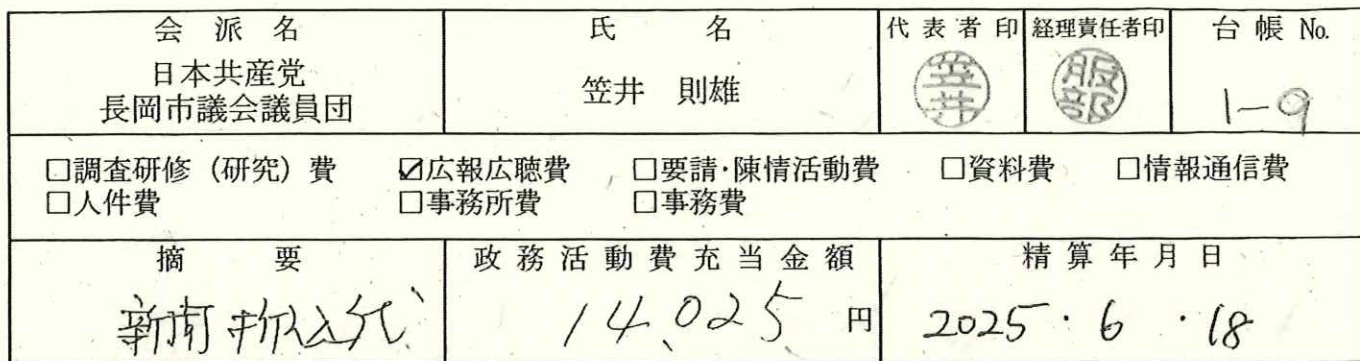 会派名 氏名 代表者印 経理責任者印 台帳 No.
日本共産党
長岡市議会議員団
笠井 則雄
笠井
服部
1-9
□調査研修（研究）費 ☑広報広聴費 □要請・陳情活動費 □資料費 □情報通信費
□人件費 □事務所費 □事務費
摘要 政務活動費充当金額 精算年月日
新聞折込代 14,025 円 2025・6・18